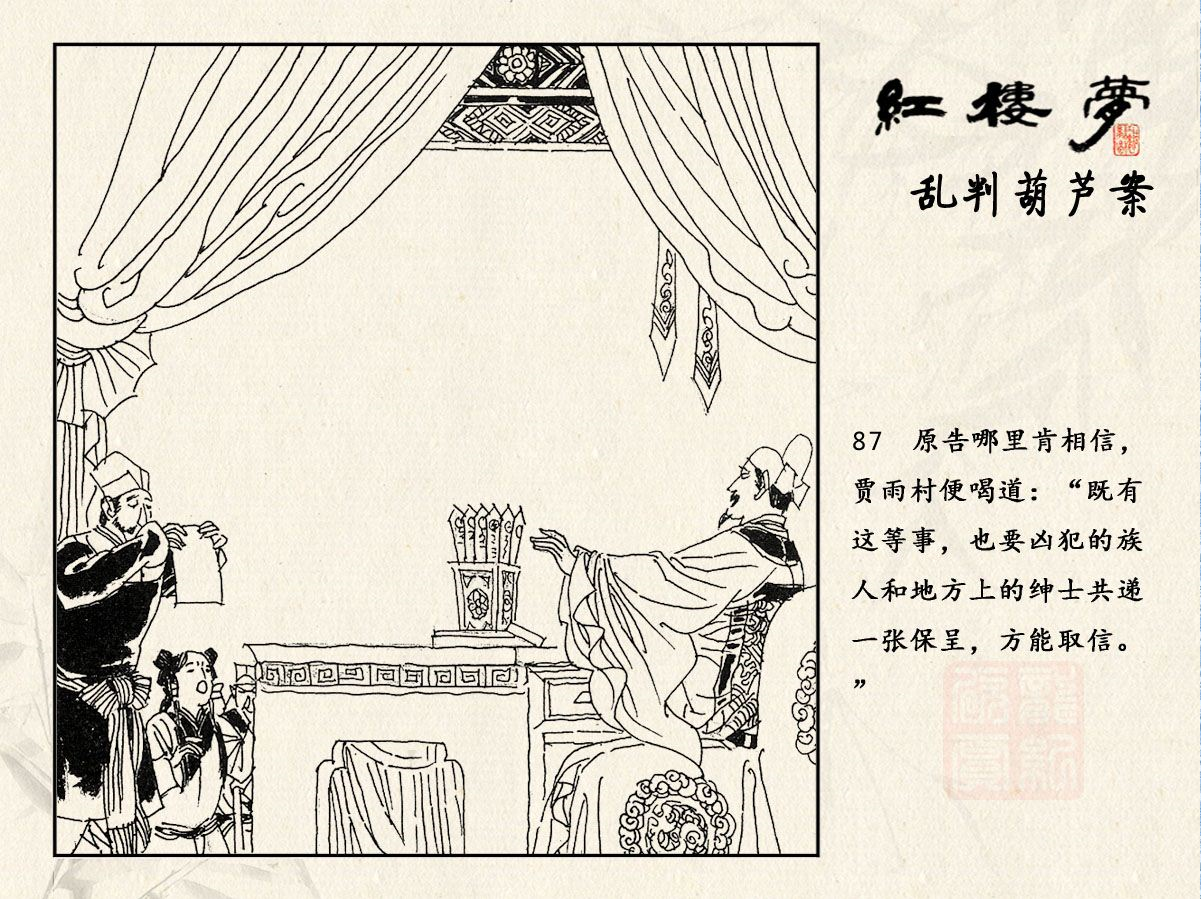 紅樓夢
乱判葫芦案
87 原告哪里肯相信，
贾雨村便喝道：“既有
这等事，也要凶犯的族
人和地方上的绅士共递
一张保呈，方能取信。
”